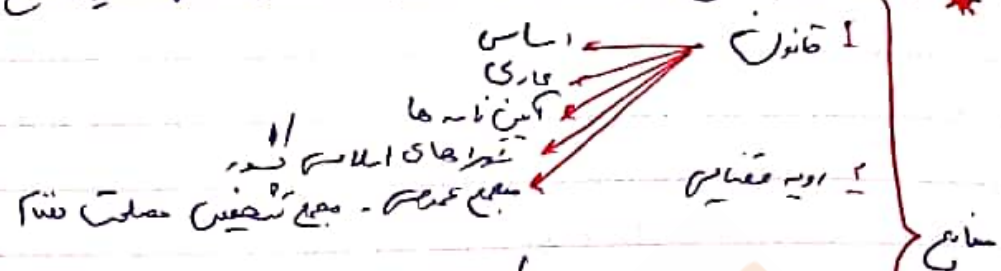 ۱ قانون
اساسی
عادی
آیین نامه ها
شوراهای اسلامی کشور
مجمع عمومی - مجمع تشخیص مصلحت نظام
۲ رویه قضایی
منابع